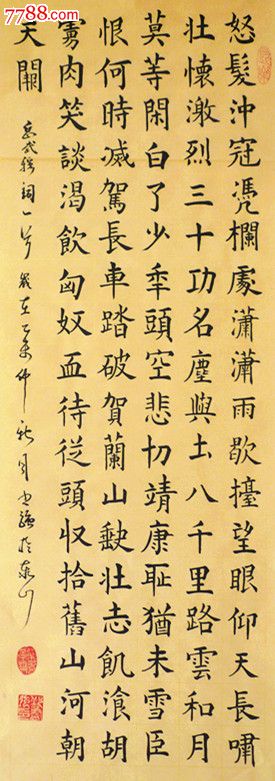 7788.com
怒髮沖冠凴欄處瀟瀟雨歇擡望眼仰天長嘯
壯懷激烈三十功名塵與土八千里路雲和月
莫等閑白了少秊頭空悲切靖康恥猶未雪臣
恨何時滅駕長車踏破賀蘭山缺壯志飢飡胡
虜肉笑談渴飲匈奴血待從頭收拾舊山河朝
天闕
武穆詞一首 歲在乙未仲秋月